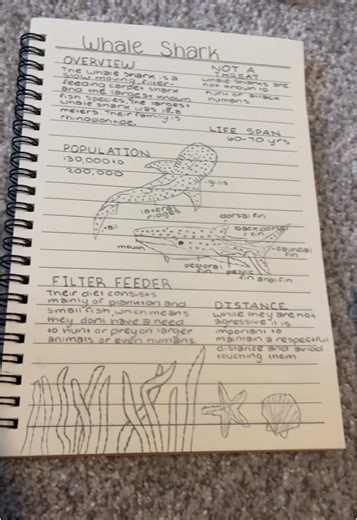 Whale Shark
OVERVIEW
The whale shark is a
slow moving filter
feeding carpet shark
and the largest known
fish species. The largest
whale shark was 18.8
meters. Their family is
rhincodontidae.
NOT A
THREAT
whale sharks are
not known to
hunt or attack
humans.
LIFE SPAN
60-70 yrs
POPULATION
130,000 to
200,000
gills
lateral
ridges
tail
dorsal fin
back dorsal
fin
caundal
fin
mouth
pectoral
fin
pelvic
fin
anal fin
FILTER FEEDER
Their diet consists
mainly of plankton and
small fish, which means
they dont have a need
to hunt or prey on larger
animals or even humans.
DISTANCE
while they are not
agressive it is
important to
maintain a respectful
distance and avoid
touching them